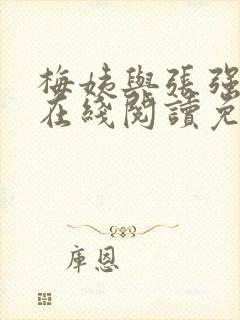 梅姨與張强
在綫閱讀免
库恩